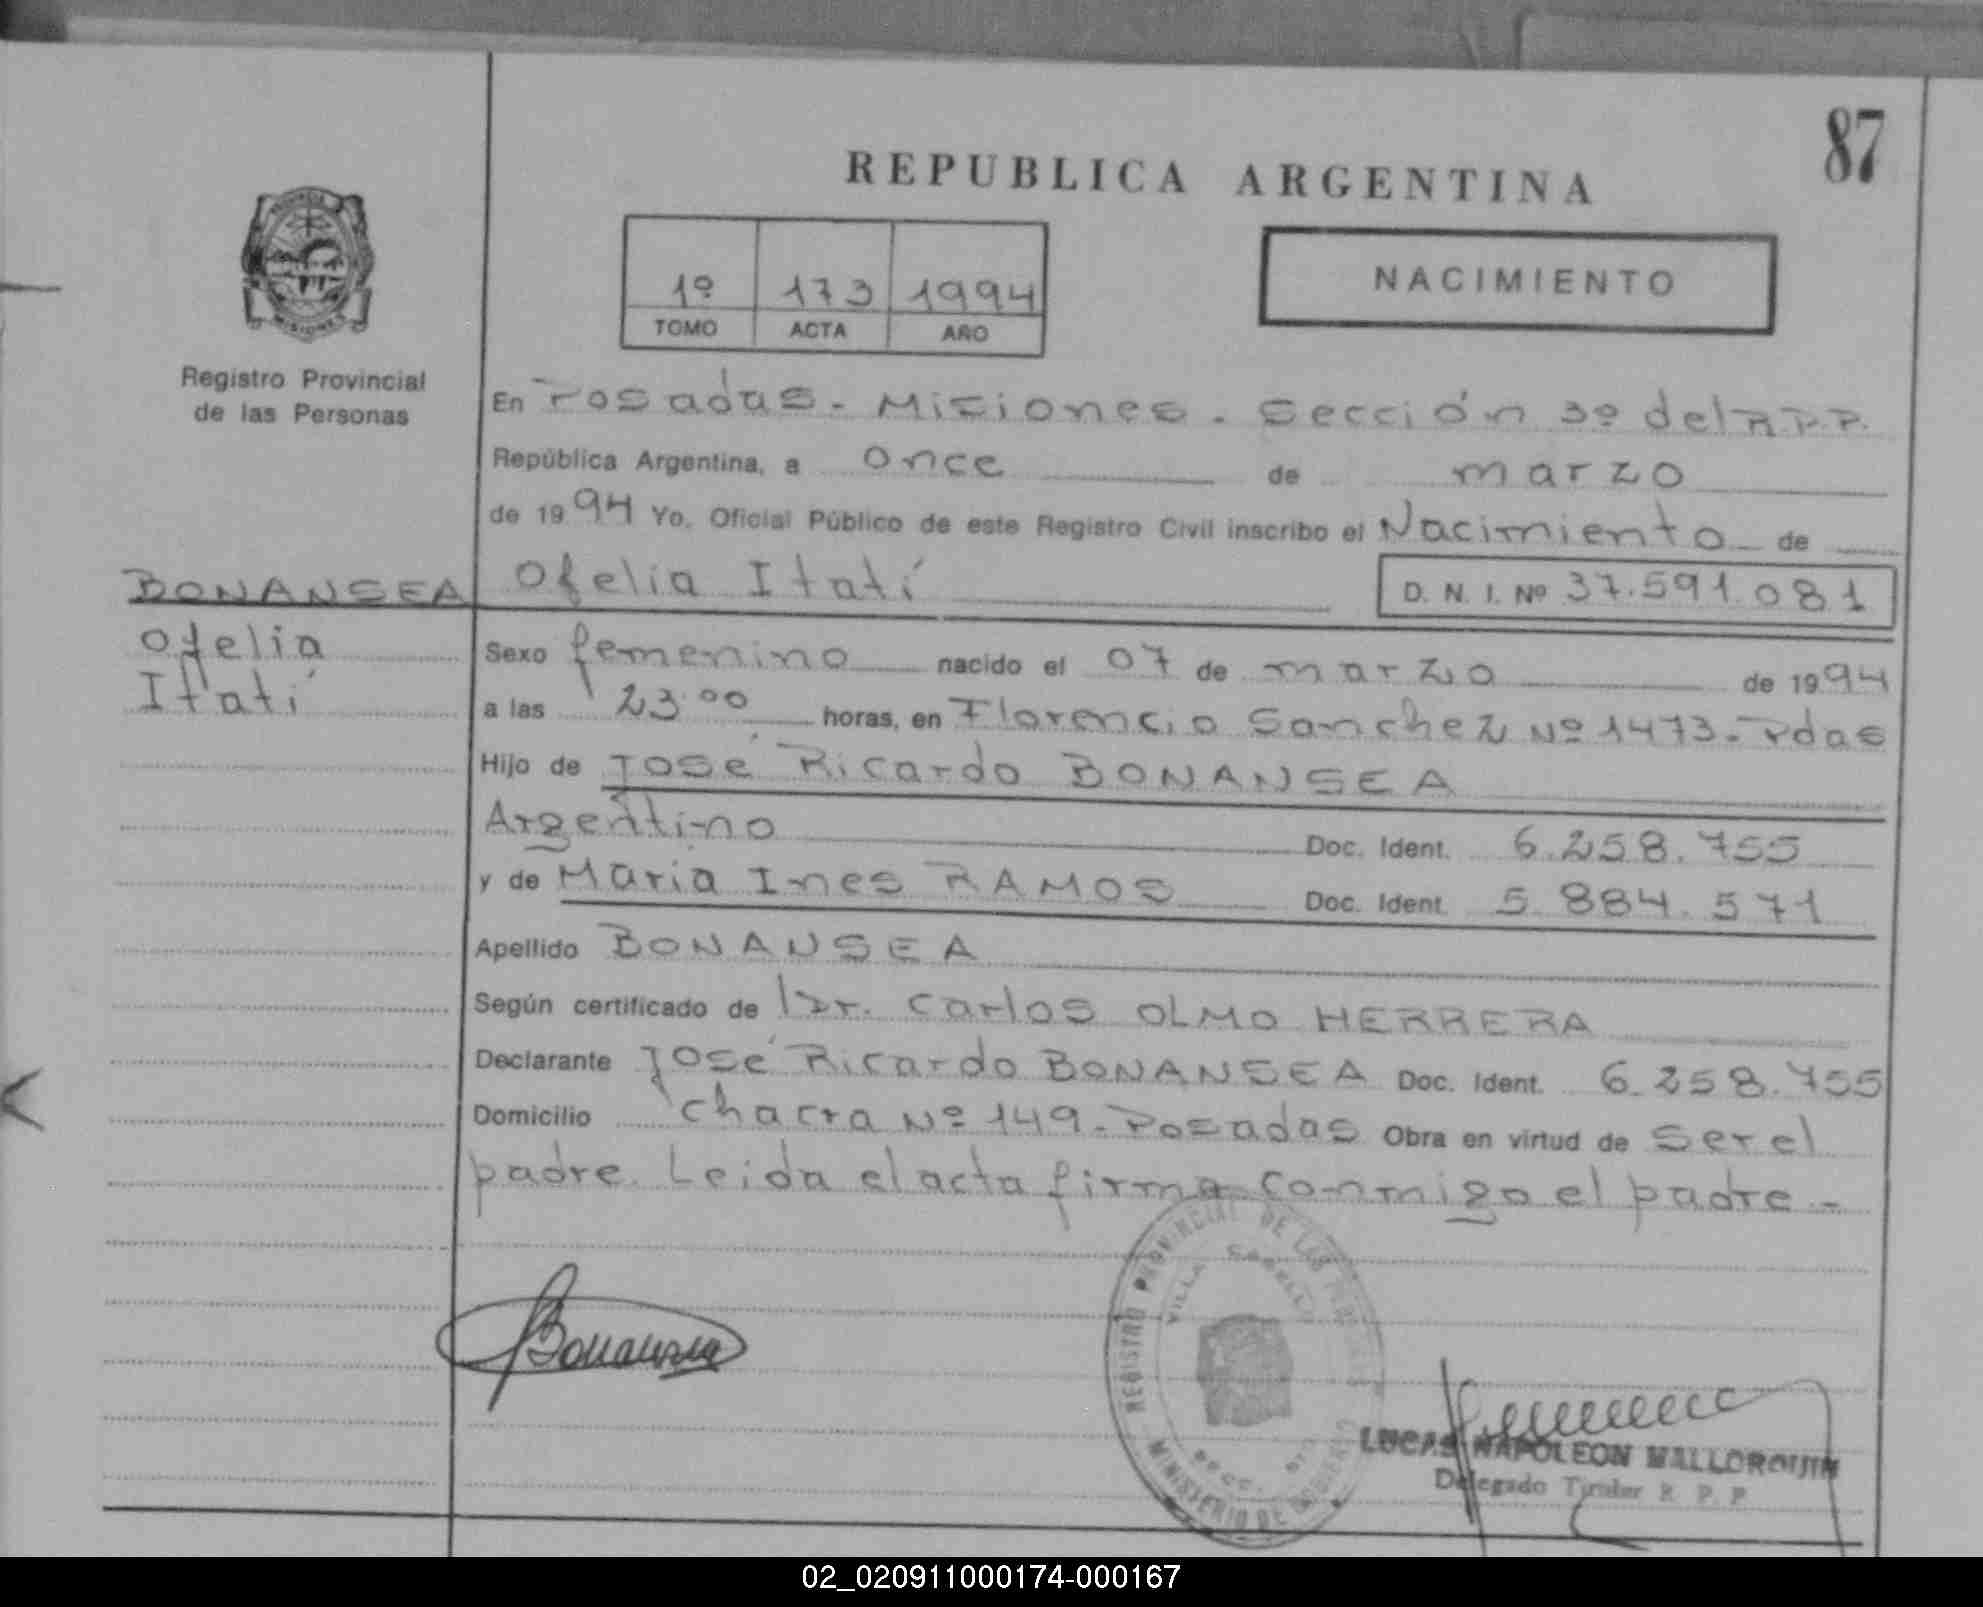 87
REPUBLICA ARGENTINA
NACIMIENTO
1º 173 1994
TOMO ACTA AÑO
MISIONES
Registro Provincial
de las Personas
En Posadas - Misiones - Sección 3º del R.P.P.
República Argentina, a once de marzo
de 1994 Yo, Oficial Público de este Registro Civil inscribo el Nacimiento de
BONANSEA Ofelia Itatí D. N. I. Nº 37.591.081
Ofelia
Itatí
Sexo femenino nacido el 07 de marzo de 1994
a las 23:00 horas, en Florencio Sanchez Nº 1473 - Pdas
Hijo de José Ricardo BONANSEA
Argentino Doc. Ident. 6.258.755
y de Maria Ines RAMOS Doc. Ident. 5.884.571
Apellido BONANSEA
Según certificado de Dr. Carlos OLMO HERRERA
Declarante José Ricardo BONANSEA Doc. Ident. 6.258.755
Domicilio Chacra Nº 149 - Posadas Obra en virtud de ser el
padre. Leida el acta firma conmigo el padre -
Bonansea
REGISTRO PROVINCIAL DE LAS PERSONAS
VILLA
MINISTERIO DE GOBIERNO
LUCAS NAPOLEON MALLORQUIN
Delegado Titular R. P. P.
02_020911000174-000167